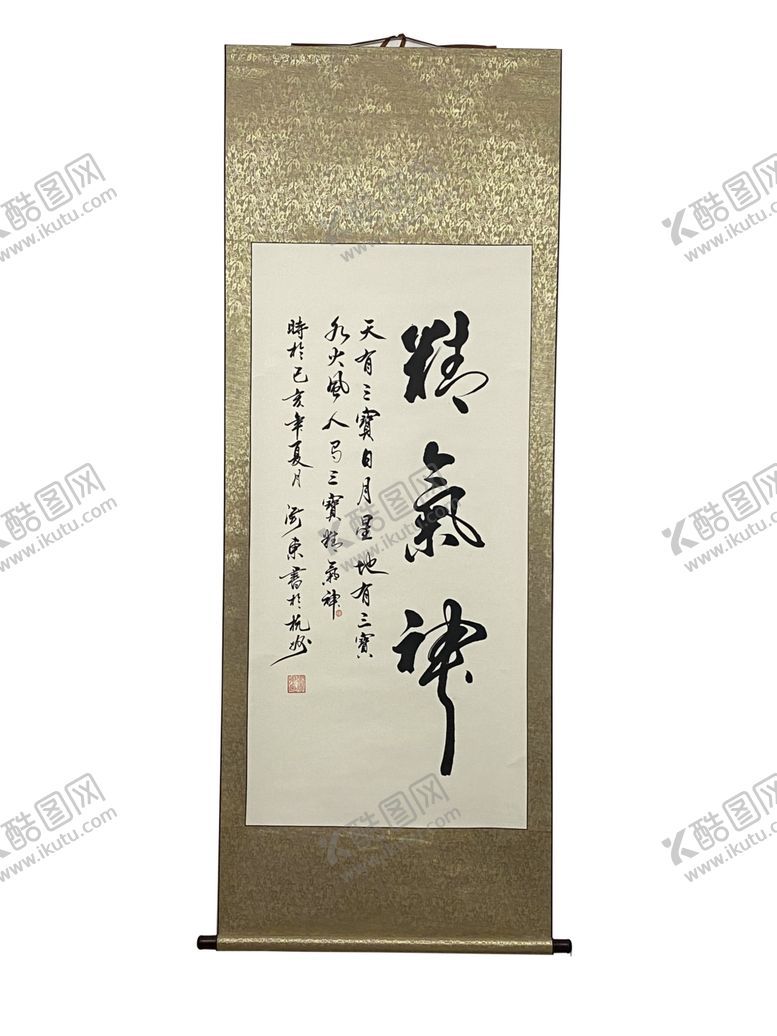 精氣神
天有三寶日月星地有三寶
水火風人有三寶精氣神
時於己亥年夏月 東書於杭州
酷图网
www.ikutu.com
酷图网
www.ikutu.com
酷图网
www.ikutu.com
酷图网
www.ikutu.com
酷图网
www.ikutu.com
酷图网
www.ikutu.com
酷图网
www.ikutu.com
酷图网
www.ikutu.com
酷图网
www.ikutu.com